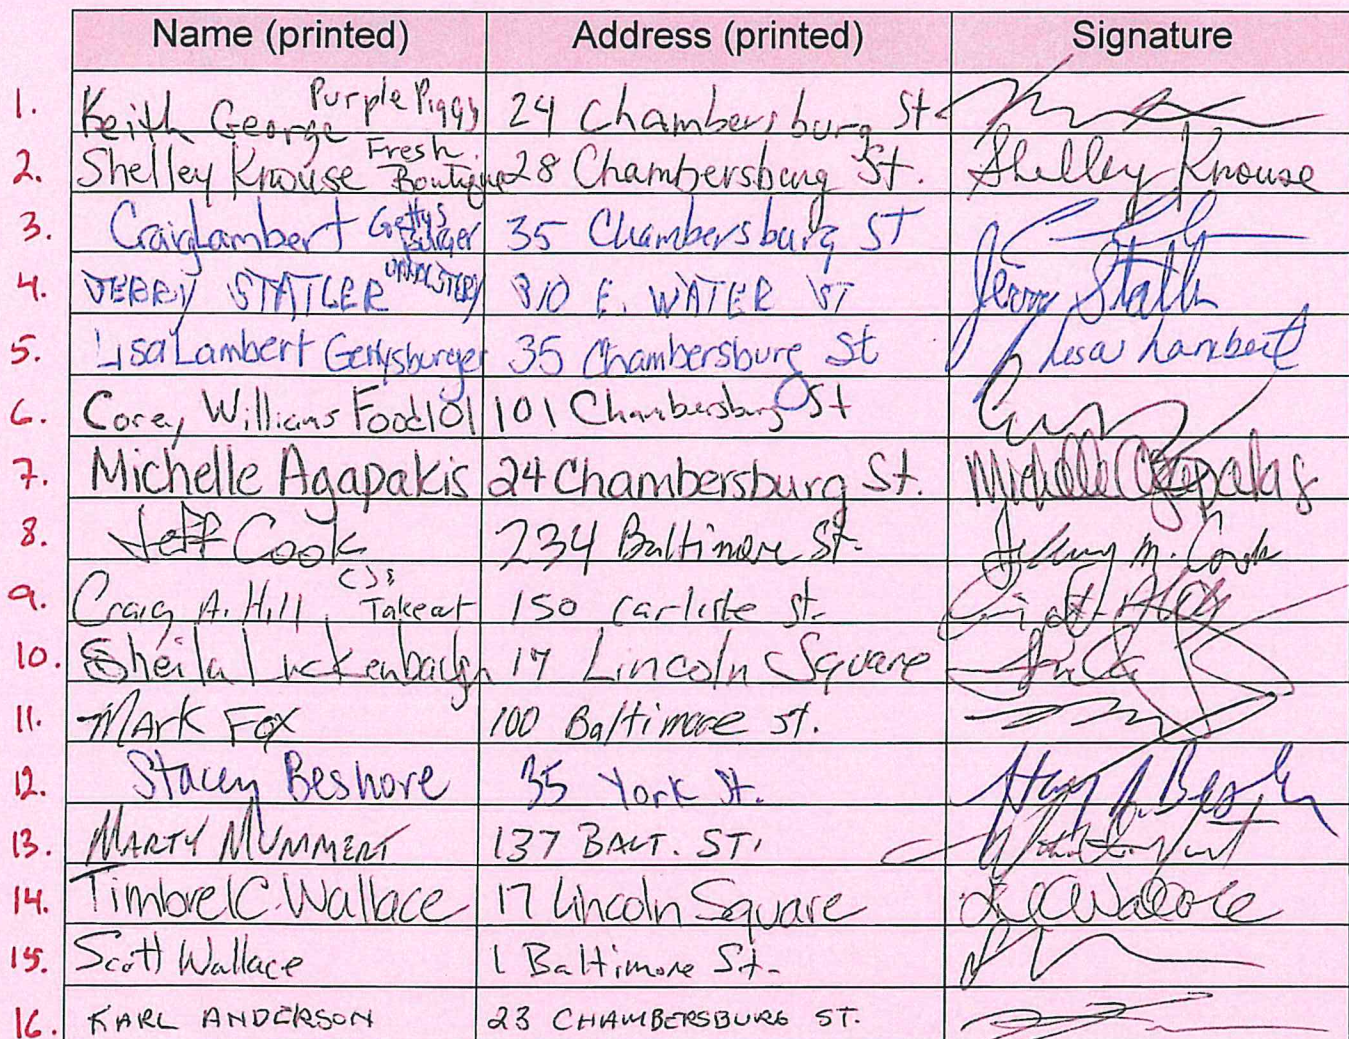 Name (printed) Address (printed) Signature
1. Keith George Purple Piggy 24 Chambersburg St
2. Shelley Knouse Fresh Boutique 28 Chambersburg St. Shelley Knouse
3. Craig Lambert Gettysburger 35 Chambersburg ST
4. JERRY STATLER UPHOLSTERY 310 E. WATER ST Jerry Statler
5. Lisa Lambert Gettysburger 35 Chambersburg St Lisa Lambert
6. Corey Williams Food101 101 Chambersburg St
7. Michelle Agapakis 24 Chambersburg St. Michelle Agapakis
8. Jeff Cook 234 Baltimore St. Jeffrey M. Cook
9. Craig A. Hill CJ's Takeout 150 Carlisle St.
10. Sheila Luckenbaugh 17 Lincoln Square
11. MARK FOX 100 Baltimore St.
12. Stacey Beshore 35 York St.
13. MARTY MUMMERT 137 BALT. ST.
14. Timbrel C. Wallace 17 Lincoln Square
15. Scott Wallace 1 Baltimore St.
16. KARL ANDERSON 23 CHAMBERSBURG ST.